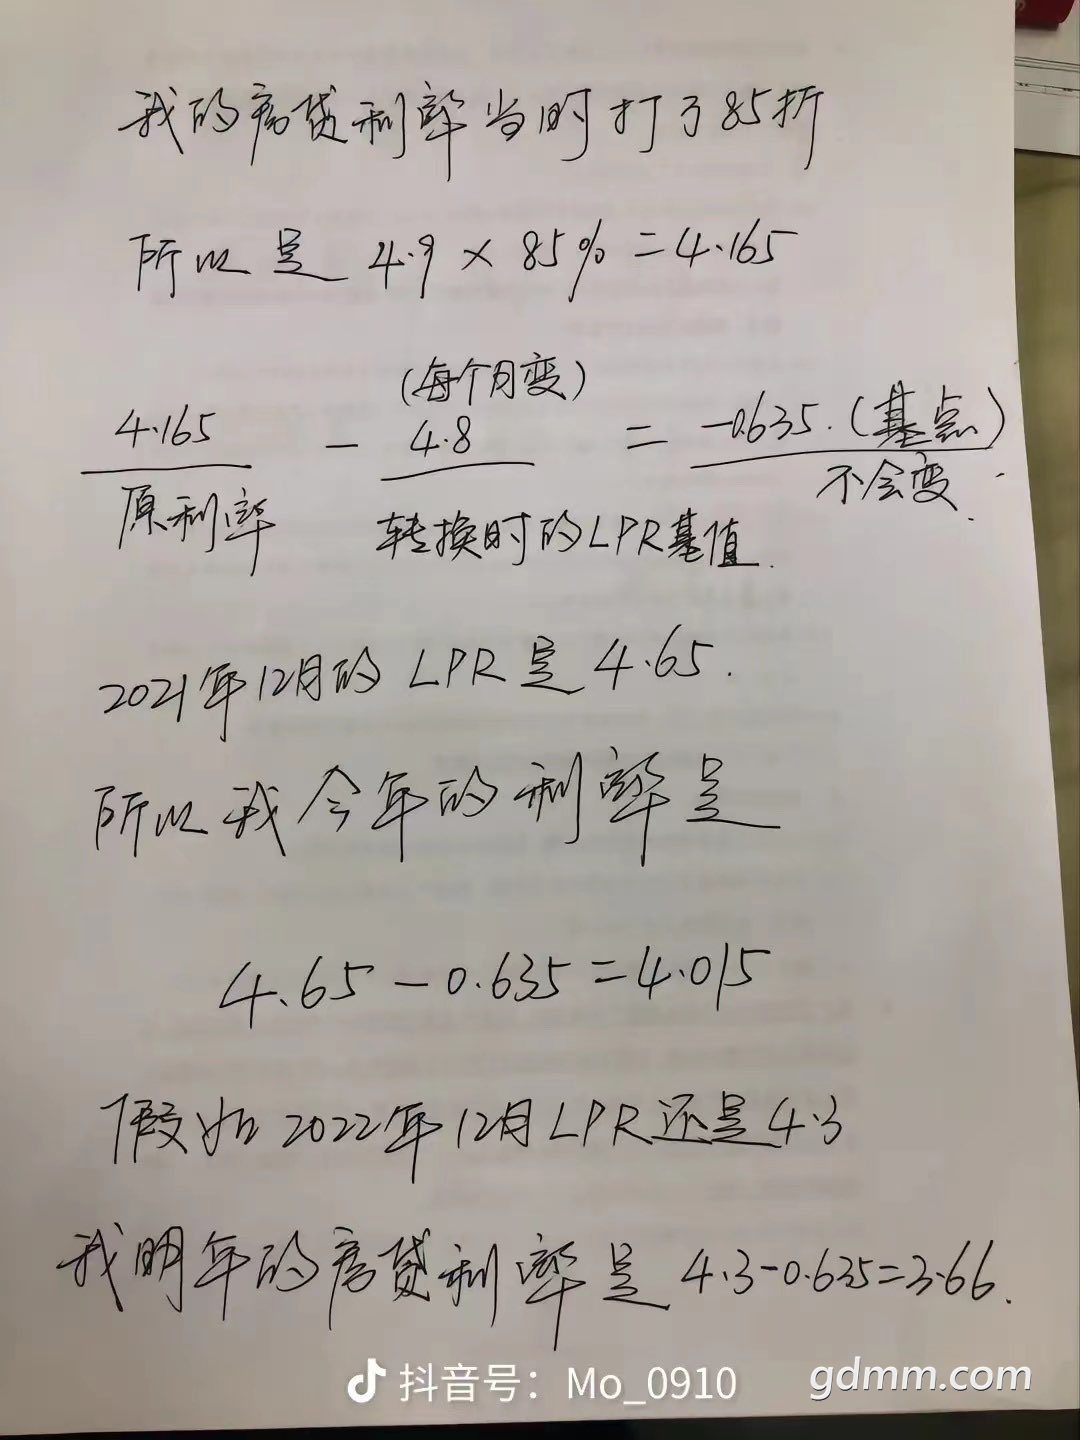 我的房贷利率当时打了85折
所以是 4.9 × 85% = 4.165
(每个月变)
4.165 - 4.8 = -0.635.(基点)
原利率 转换时的LPR基值. 不会变.
2021年12月的 LPR 是 4.65.
所以我今年的利率是
4.65-0.635=4.015
假如2022年12月LPR还是4.3
我明年的房贷利率是 4.3-0.635=3.66.
抖音号：Mo_0910
gdmm.com